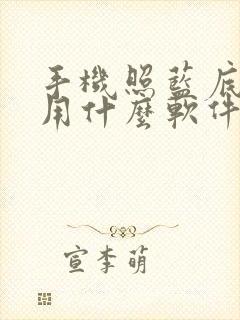 手機照藍底
用什麼軟件
宣李萌